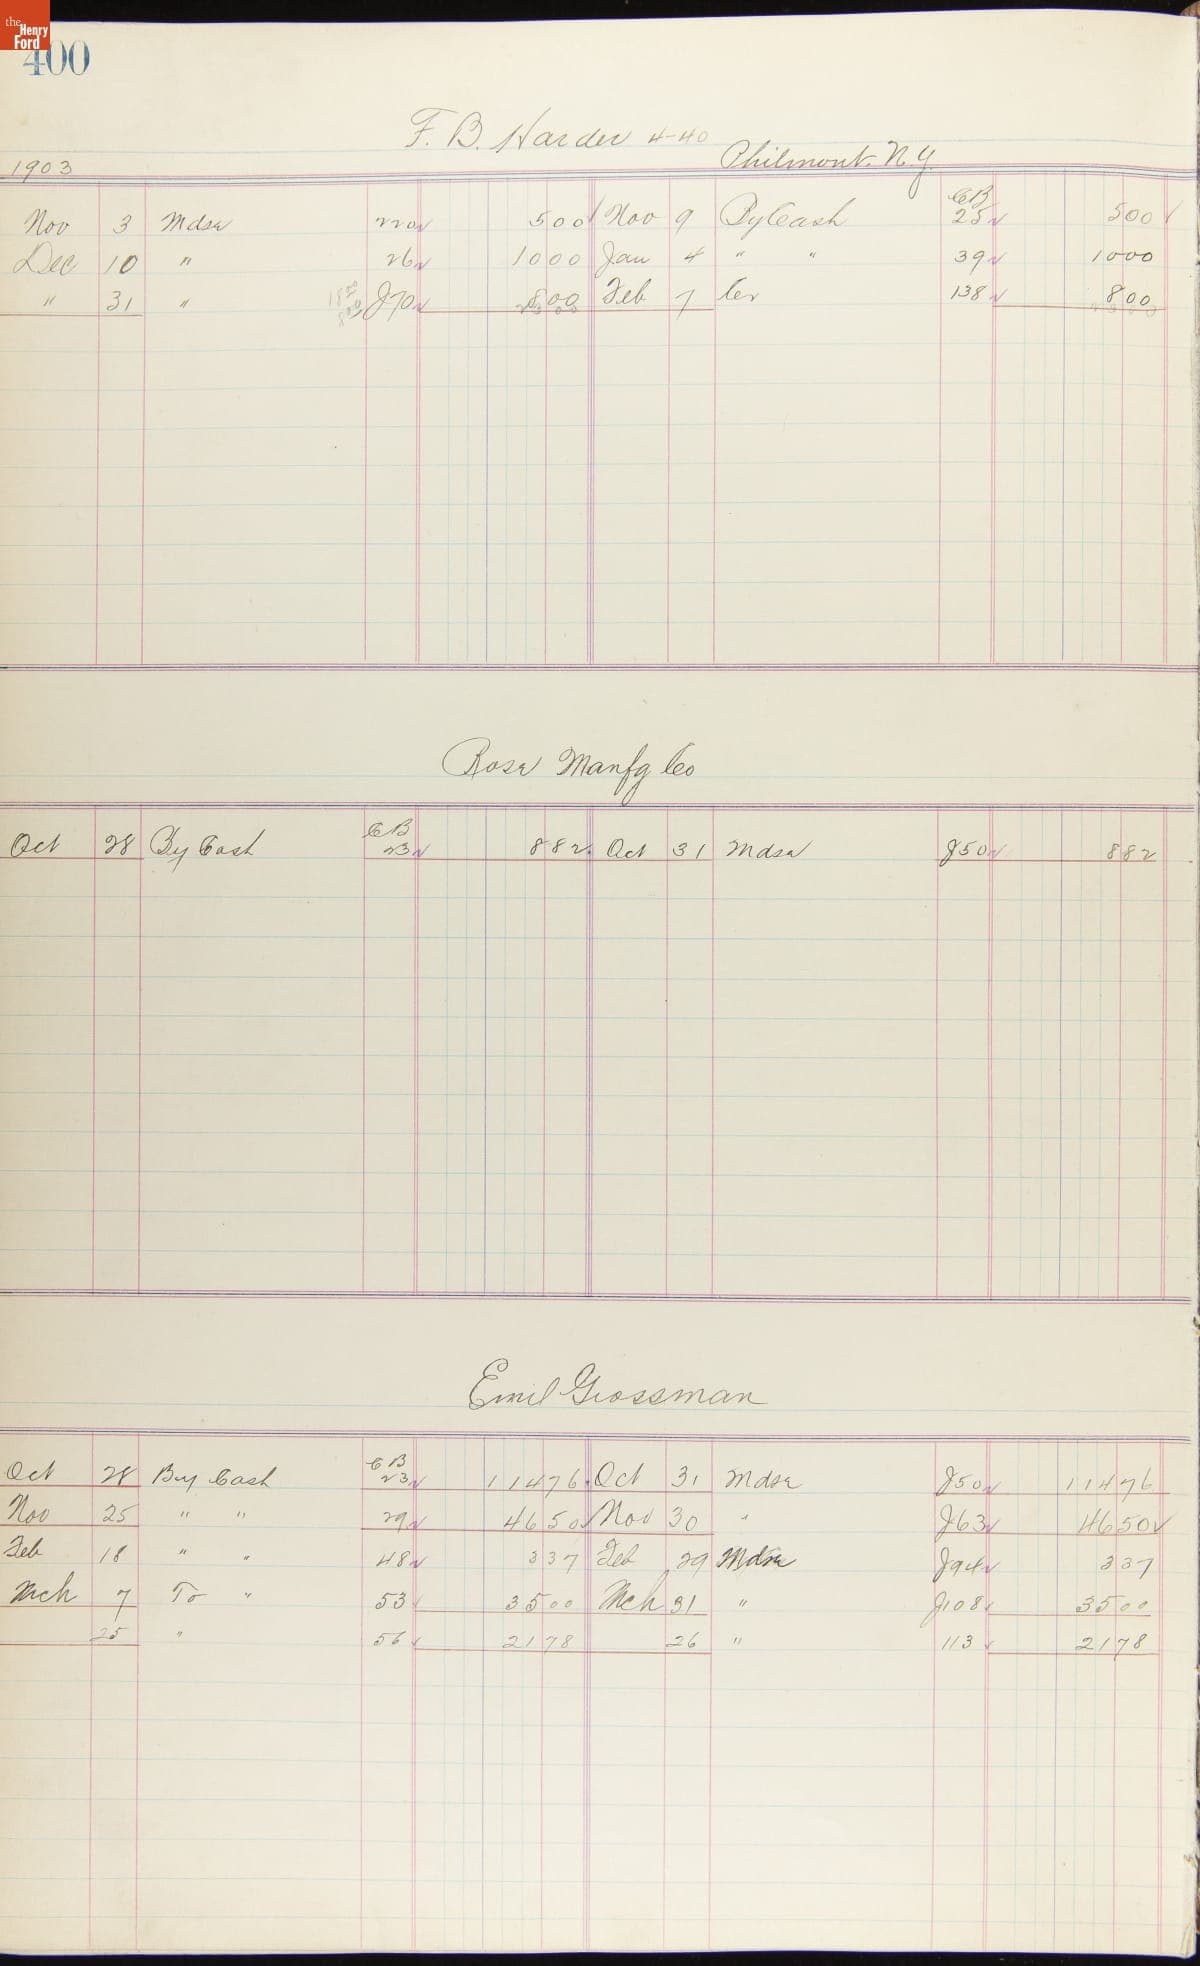 the Henry Ford
400
F. B. Harder 4-40
1903 Philmont. N.Y.
Nov 3 Mdse 220 500 Nov 9 By Cash CB 25 500
Dec 10 " 26 1000 Jan 4 " " 39 1000
" 31 " 1800 800 J70 800 Feb 7 Cr 138 800
Rose Manfg Co
Oct 28 By Cash CB 23 882 Oct 31 Mdse J50 882
Emil Grossman
Oct 28 By Cash CB 23 11476 Oct 31 Mdse J50 11476
Nov 25 " " 29 4650 Nov 30 " J63 4650
Feb 18 " " 48 337 Feb 29 Mdse J94 337
Mch 7 To " 53 3500 Mch 31 " J108 3500
25 " 56 2178 26 " 113 2178